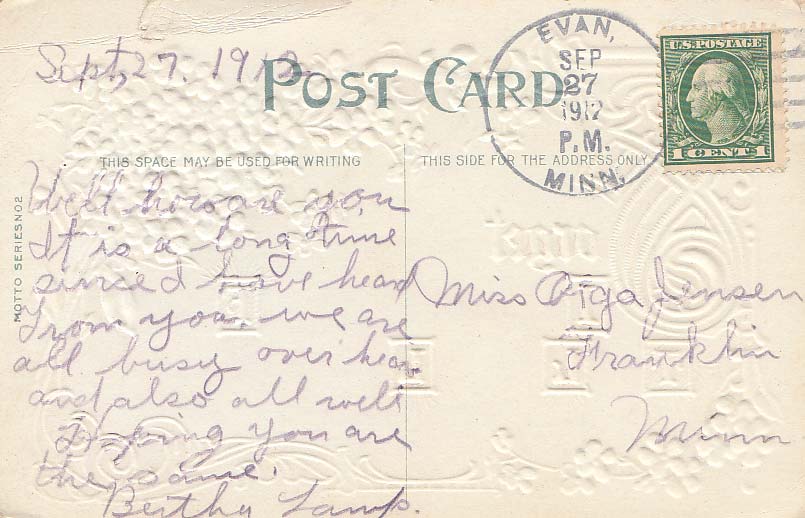 Sept, 27. 1912
POST CARD
EVAN,
SEP
27
1912
P.M.
MINN.
U.S. POSTAGE
1 CENT 1
THIS SPACE MAY BE USED FOR WRITING
THIS SIDE FOR THE ADDRESS ONLY
MOTTO SERIES NO 2
Well how are you
It is a long time
since I have heard
from you. we are
all busy over hear
and also all well
hoping you are
the same.
Bertha Lamp.
Miss Jensen
Franklin
Minn